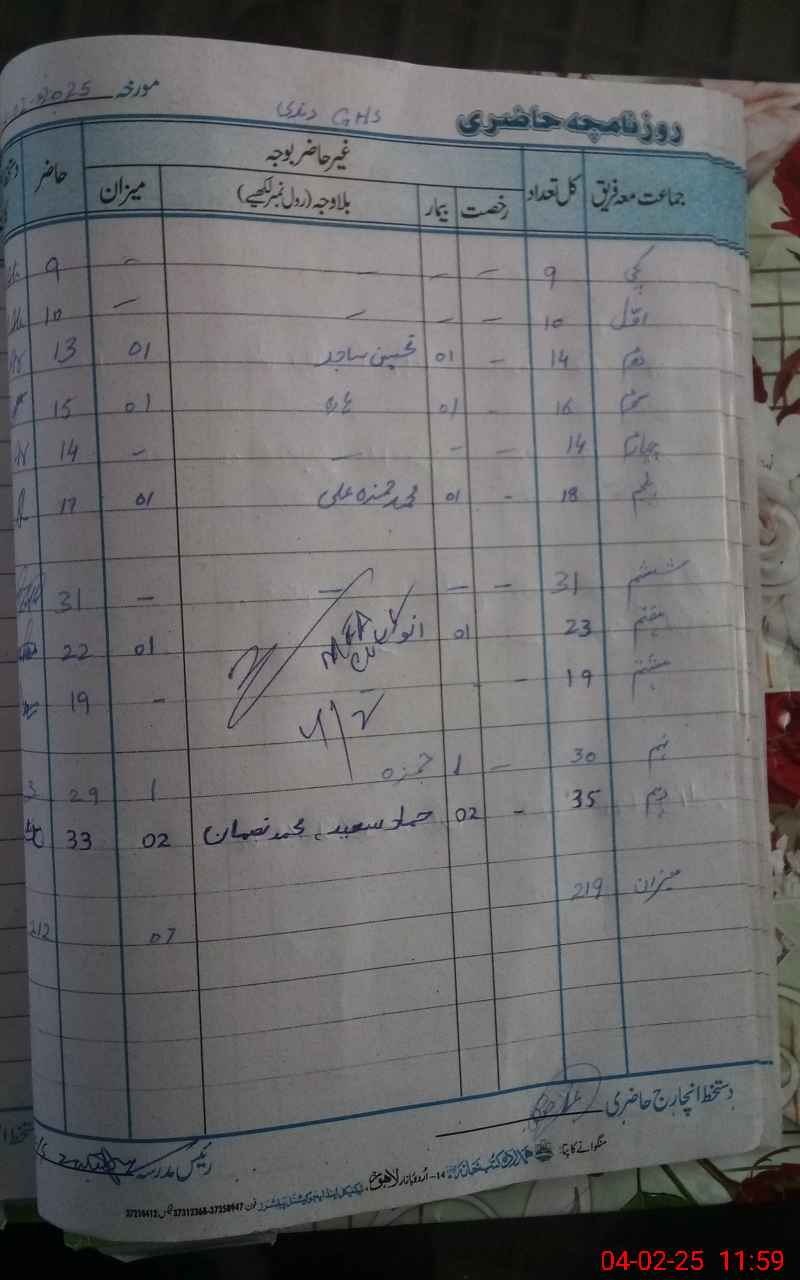 روزنامچہ حاضری GHS دندی مورخہ 2025
جماعت معہ فریق کل تعداد غیر حاضر بوجہ حاضر
رخصت بیمار بلاوجہ (رول نمبر لکھیے) میزان
کچی 9 – – – – 9
اوّل 10 – – – – 10
دوم 14 – 01 تحسین ساجد 01 13
سوئم 16 - 01 01 15
چہارم 14 - - – – 14
پنجم 18 - 01 محمد حمزہ علی 01 17
ششم 31 – – – – 31
ہفتم 23 01 01 22
ہشتم 19 - - – - 19
4/2
نہم 30 – 1 حمزہ 1 29
دہم 35 - 02 حماد سعید، محمد نعمان 02 33
میزان 219 07 212
دستخط انچارج حاضری
رئیس مدرسہ
منگوانے کا پتہ: ہمدرد کتب خانہ 14-اُردو بازار لاہور، فون 37358947-37312368 فیکس: 37210412
04-02-25 11:59